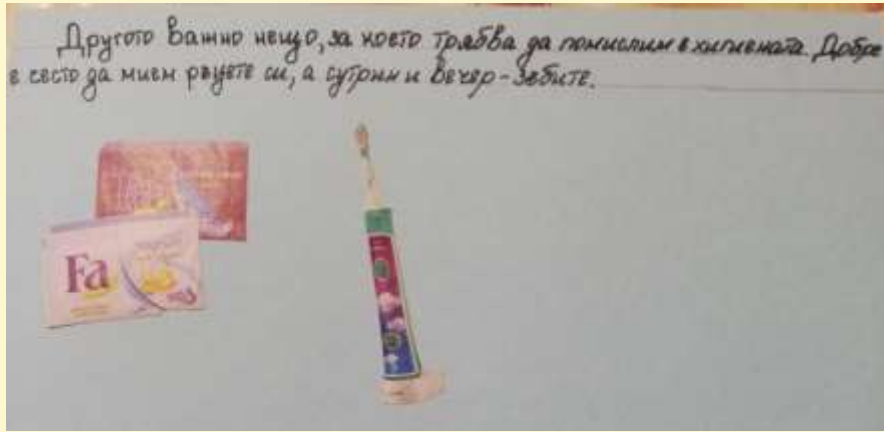 Другото важно нещо, за което трябва да помислим е хигиената. Добре
е често да мием ръцете си, а сутрин и вечер - зъбите.
Fa